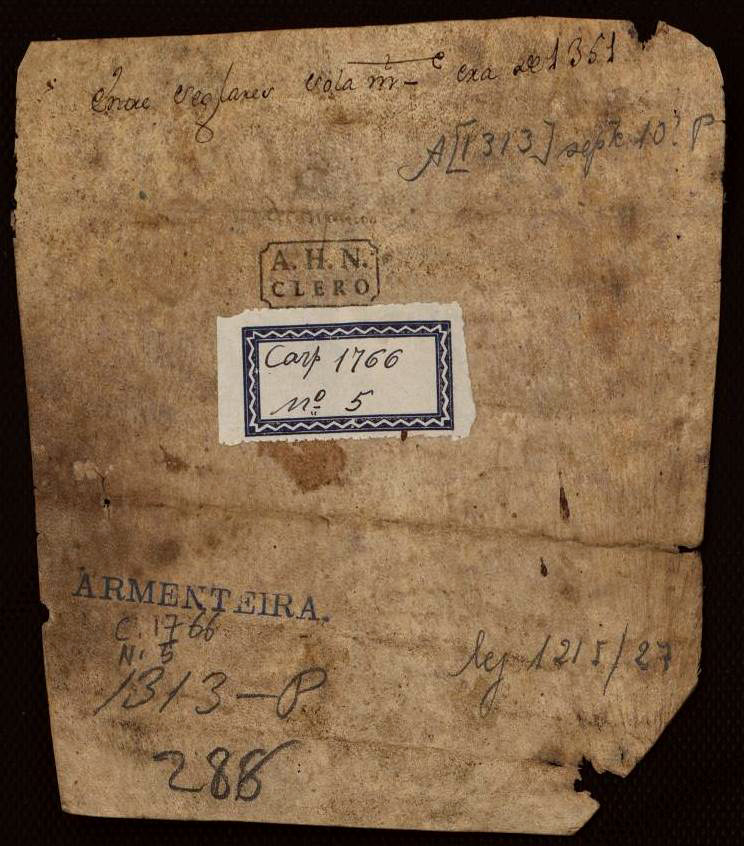 Entre Seglares Sola mte era de 1351
A[1313] sept. 10? P
A. H. N.
CLERO
Carp 1766
nº 5
ARMENTEIRA.
C. 1766
N. 5
1313-P
leg 1215/27
288